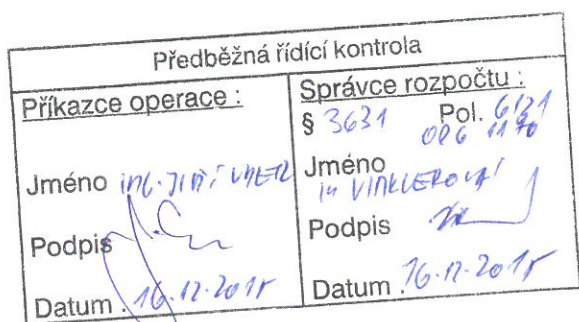 Předběžná řídící kontrola
Příkazce operace :
Jméno ING. JIŘÍ
Podpis
Datum . 16.12.2015
Správce rozpočtu :
§ 3631 Pol. 6121
ORG 1170
Jméno
VINKLEROVÁ
Podpis
Datum . 16.12.2015